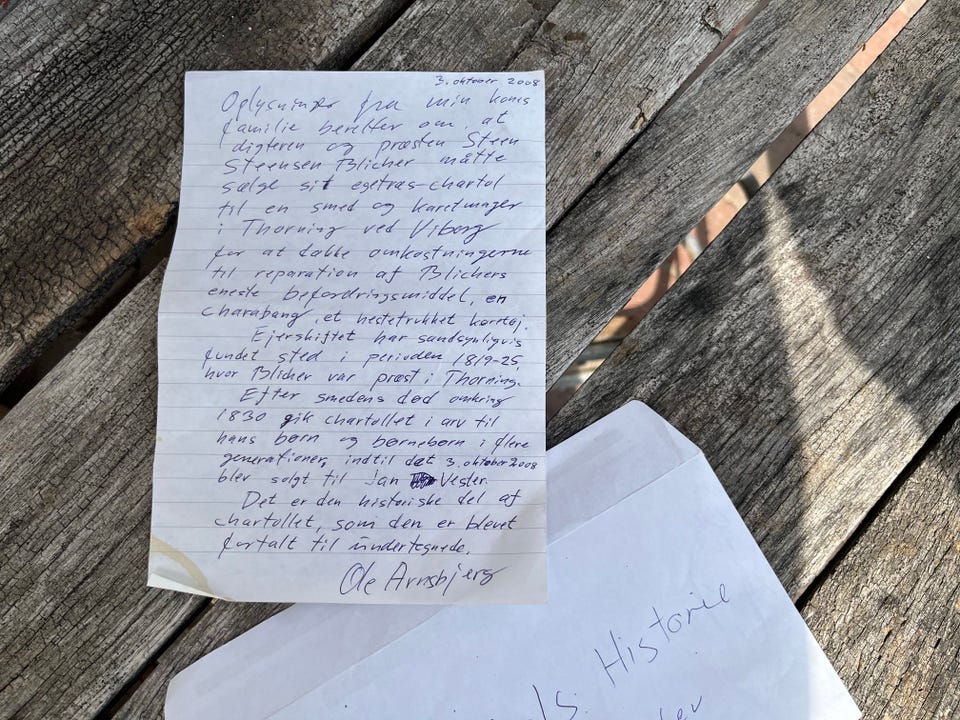 3. oktober 2008
Oplysninger fra min kones
familie beretter om, at
digteren og præsten Steen
Steensen Blicher måtte
sælge sit egetræs-chartol
til en smed og karetmager
i Thorning ved Viborg
for at dække omkostningerne
til reparation af Blichers
eneste befordringsmiddel, en
charabang, et hestetrukket køretøj.
Ejerskiftet har sandsynligvis
fundet sted i perioden 1819-25,
hvor Blicher var præst i Thorning.
Efter smedens død omkring
1830 gik chartollet i arv til
hans børn og børnebørn i flere
generationer, indtil det 3. oktober 2008
blev solgt til Jan Vester.
Det er den historiske del af
chartollet, som den er blevet
fortalt til undertegnede.
Ole Arnsbjerg
Historie